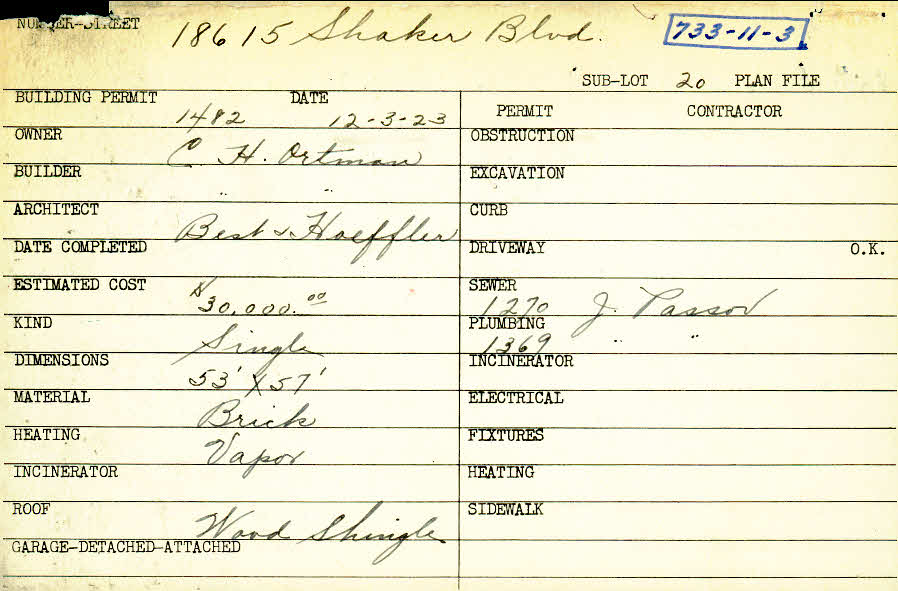 NUMBER-STREET 18615 Shaker Blvd. 733-11-3
SUB-LOT 20 PLAN FILE
BUILDING PERMIT 1482 DATE 12-3-23
PERMIT CONTRACTOR
OWNER C. H. Ortman
OBSTRUCTION
BUILDER " "
EXCAVATION
ARCHITECT Best & Hoeffler
CURB
DATE COMPLETED
DRIVEWAY O.K.
ESTIMATED COST $30,000.00
SEWER 1270 J. Passov
KIND Single
PLUMBING 1369 " "
DIMENSIONS 53' X 57'
INCINERATOR
MATERIAL Brick
ELECTRICAL
HEATING Vapor
FIXTURES
INCINERATOR
HEATING
ROOF Wood Shingle
SIDEWALK
GARAGE-DETACHED-ATTACHED